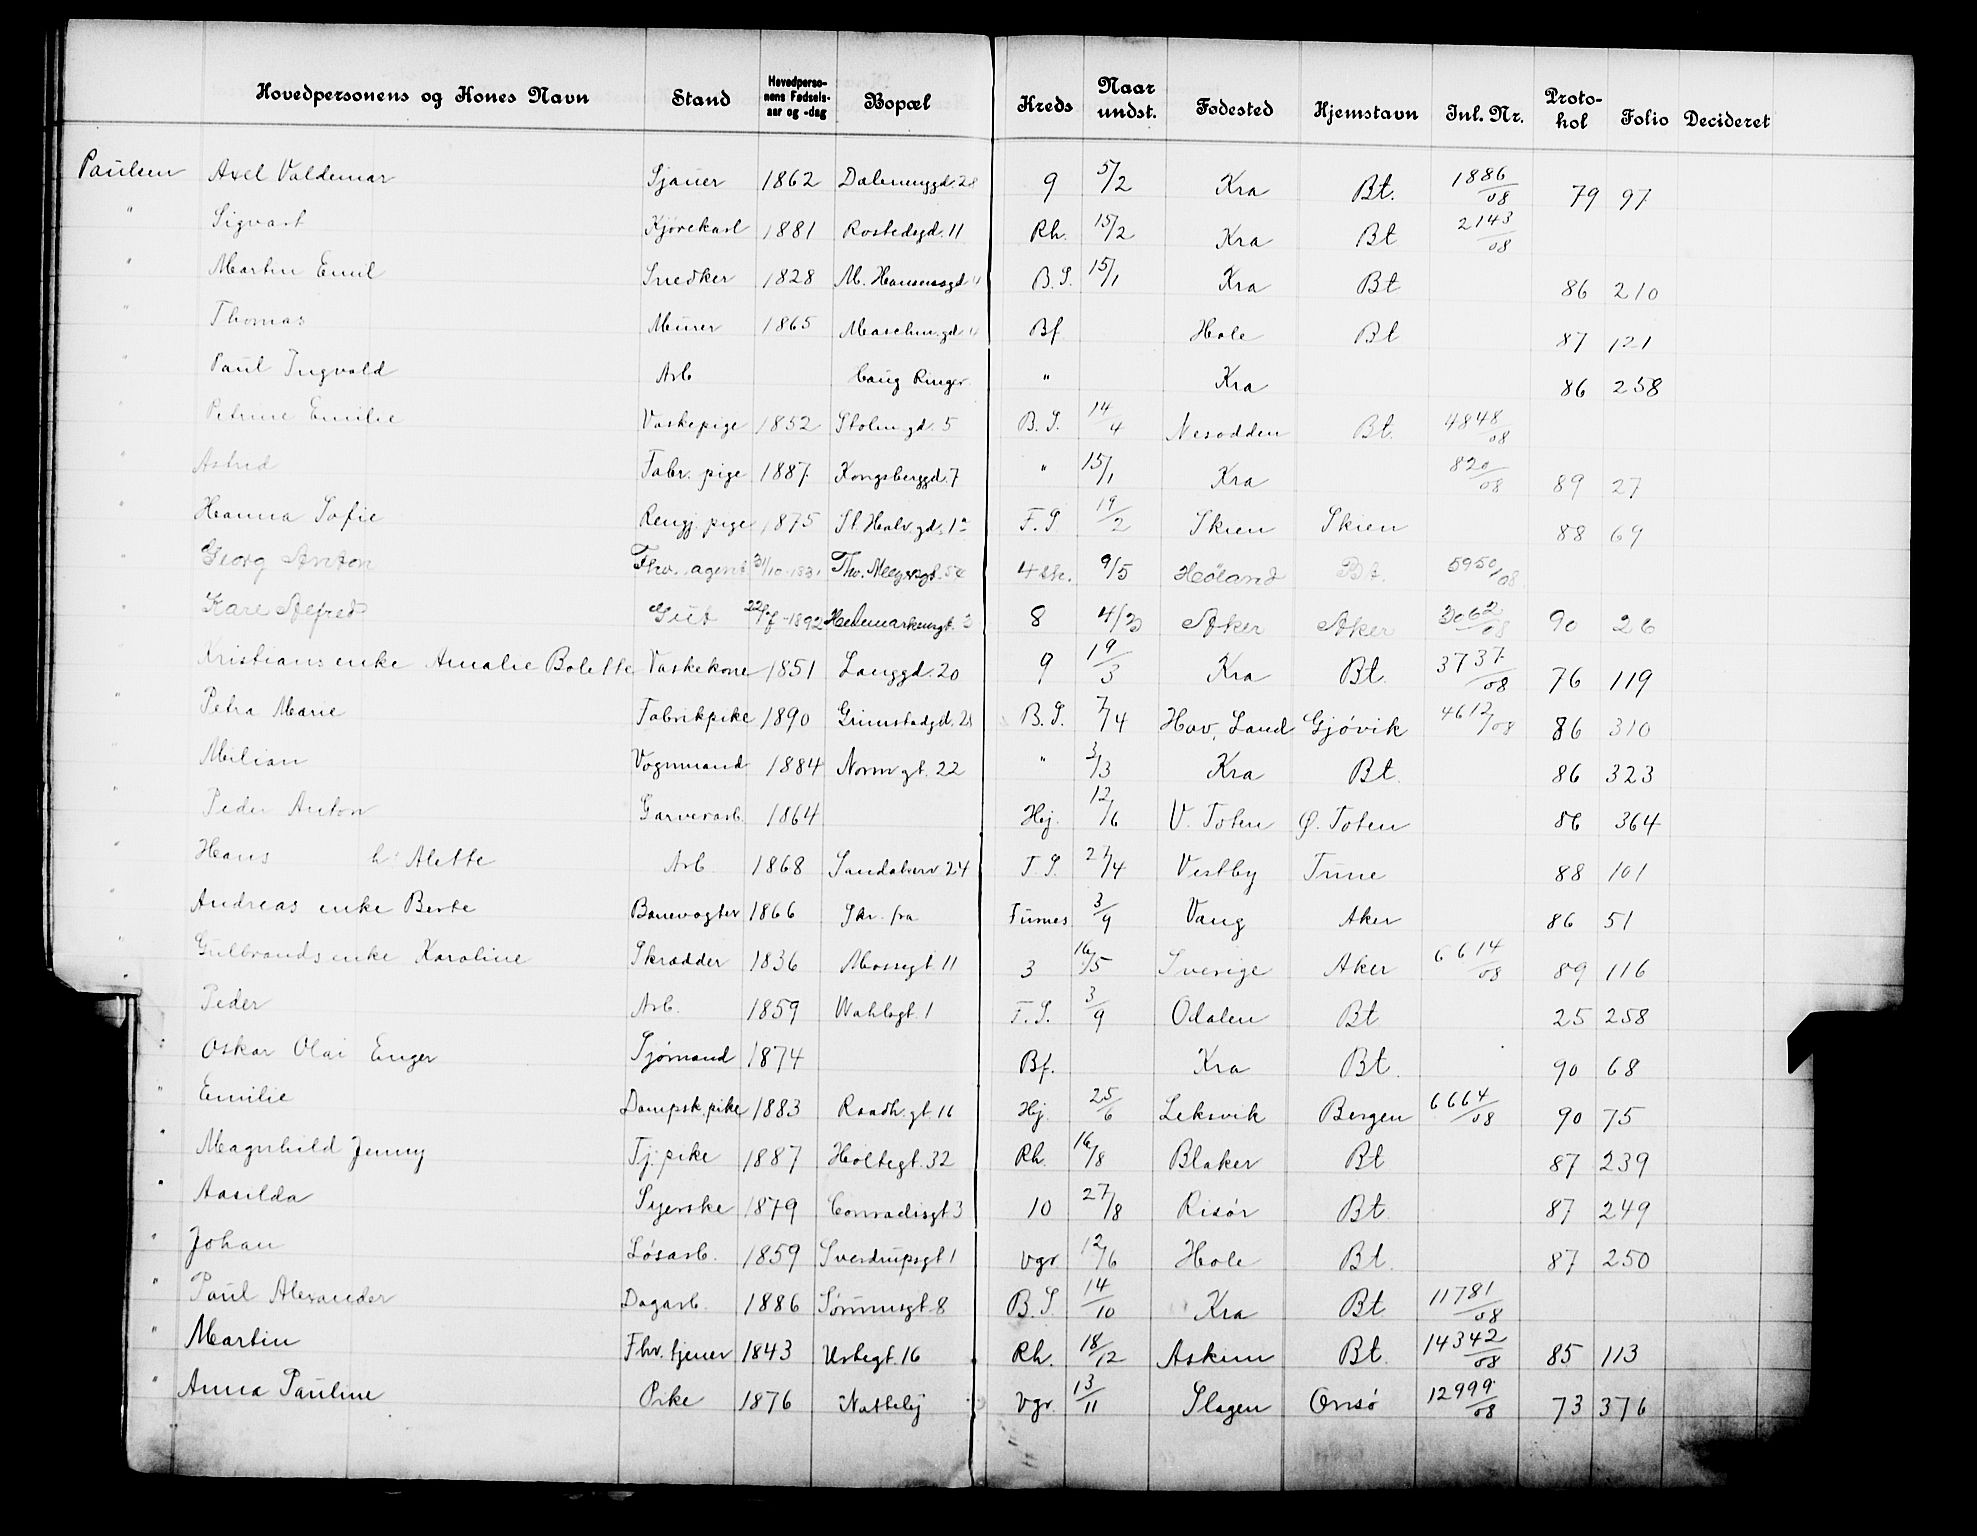 Hovedpersonens og Kones Navn Stand Hovedperso-nens Fødsels-aar og -dag Bopæl Kreds Naar undst. Fødested Hjemstavn Inl. Nr. Proto-kol Folio Decideret
Paulsen Axel Valdemar Sjauer 1862 Dalenenggd. 28 9 5/2 Kra Bt. 1886/08 79 97
" Sigvart Kjørekarl 1881 Rostedsgd. 11 Rh. 15/2 Kra Bt 2143/08
" Martin Emil Snedker 1828 M. Hansensgd B.S. 15/1 Kra Bt 86 210
" Thomas Murer 1865 Maschin.gd Bf Hole Bt 87 121
" Paul Ingvald Arb Haug Ringer. " Kra 86 258
" Petrine Emilie Vaskepige 1852 Stolm.gd. 5 B.S. 14/4 Nesodden Bt. 4848/08
" Astrid Fabr. pige 1887. Kongsberggd. 7 " 15/1 Kra 820/08 89 27
" Hanna Sofie Rengj. pige 1875 St Halv.gd. 1a F.S. 19/2 Skien Skien 88 69
" Georg Anton Fhv. agent 31/10-1831 Thv. Meyersgt. 54 4de. 9/5 Høland Bt. 5950/08
" Kare Alfred Gut 22/7-1892 Hedemarkensgt. 3 8 4/3 Aker Aker 3062/08 90 26
" Kristians enke Amalie Bolette Vaskekone 1851 Langgd. 20 9 19/3 Kra Bt. 3737/08 76 119
" Petra Marie Fabrikpike 1890 Grimstadgd. 28 B.S. 7/4 Hov, Land Gjøvik 4612/08 86 310
" Milian Vognmand 1884 Norm gt. 22 " 3/3 Kra Bt. 86 323
" Peder Anton Garverarb. 1864 Hj. 12/6 V. Toten Ø. Toten 86 364
" Hans h. Alette Arb 1868 Sandakerv 24 F.S. 27/4 Vestby Tune 88 101
" Andreas enke Berte Banevogter 1866 Skr. fra Furnes 3/9 Vang Aker 86 51
" Gulbrands enke Karoline Skrædder 1836 Mossegt. 11 3 16/5 Sverige Aker 6614/08 89 116
" Peder Arb. 1859 Wahlsgt. 1 F.S. 3/9 Odalen Bt 25 258
" Oskar Olai Enger Sjømand 1874 Bf. Kra Bt. 90 68
" Emilie Dampsk.pike 1883 Raadh.gt. 16 Hj. 25/6 Leksvik Bergen 6664/08 90 75
" Magnhild Jenny Tj. pike 1887 Holtegt. 32 Rh. 16/8 Blaker Bt 87 239
" Aasilda Syerske 1879 Conradisgt 3 10 27/8 Risør Bt. 87 249
" Johan Løsarb. 1859 Sverdrupsgt 1 Vgr 12/6 Hole Bt. 87 250
" Paul Alexander Dagarb. 1886 Sørumsgt. 8 B.S. 14/10 Kra Bt 11781/08
" Martin Fhv. tjener 1843 Ustegt. 16 Rh. 18/12 Askim Bt. 14342/08 85 113
" Anna Pauline Pike 1876 Nattely Vgr. 13/11 Slagen Onsø 12999/08 73 376